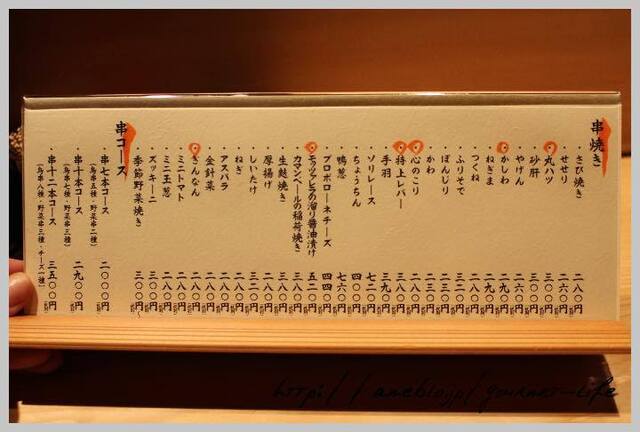 串焼き
・さび焼き 二八〇円
・せせり 二六〇円
・丸ハツ 三〇〇円
・砂肝 三〇〇円
・やげん 二六〇円
・かしわ 二九〇円
・ねぎま 二九〇円
・つくね 二八〇円
・ふりそで 二三〇円
・ぼんじり 二三〇円
・かわ 二三〇円
・心のこり 二八〇円
・特上レバー 三八〇円
・手羽 三九〇円
・ソリレース 七二〇円
・ちょうちん 四〇〇円
・鴨葱 七六〇円
・プロボローネチーズ 四四〇円
・モッツァレラの溜り醤油漬け 五二〇円
・カマンベールの稲荷焼き 三八〇円
・生麩焼き 二八〇円
・厚揚げ 二八〇円
・しいたけ 三二〇円
・ねぎ 二八〇円
・アスパラ 二八〇円
・金針菜 二八〇円
・ぎんなん 二八〇円
・ミニトマト 二八〇円
・ミニ玉葱 二八〇円
・ズッキーニ 三〇〇円
・季節野菜焼き 三〇〇円〜
串コース
・串七本コース 二〇〇〇円
（鳥串五種・野菜串二種）
・串十本コース 二九〇〇円
（鳥串七種・野菜串三種）
・串十二本コース 三五〇〇円
（鳥串八種・野菜串三種・チーズ一種）